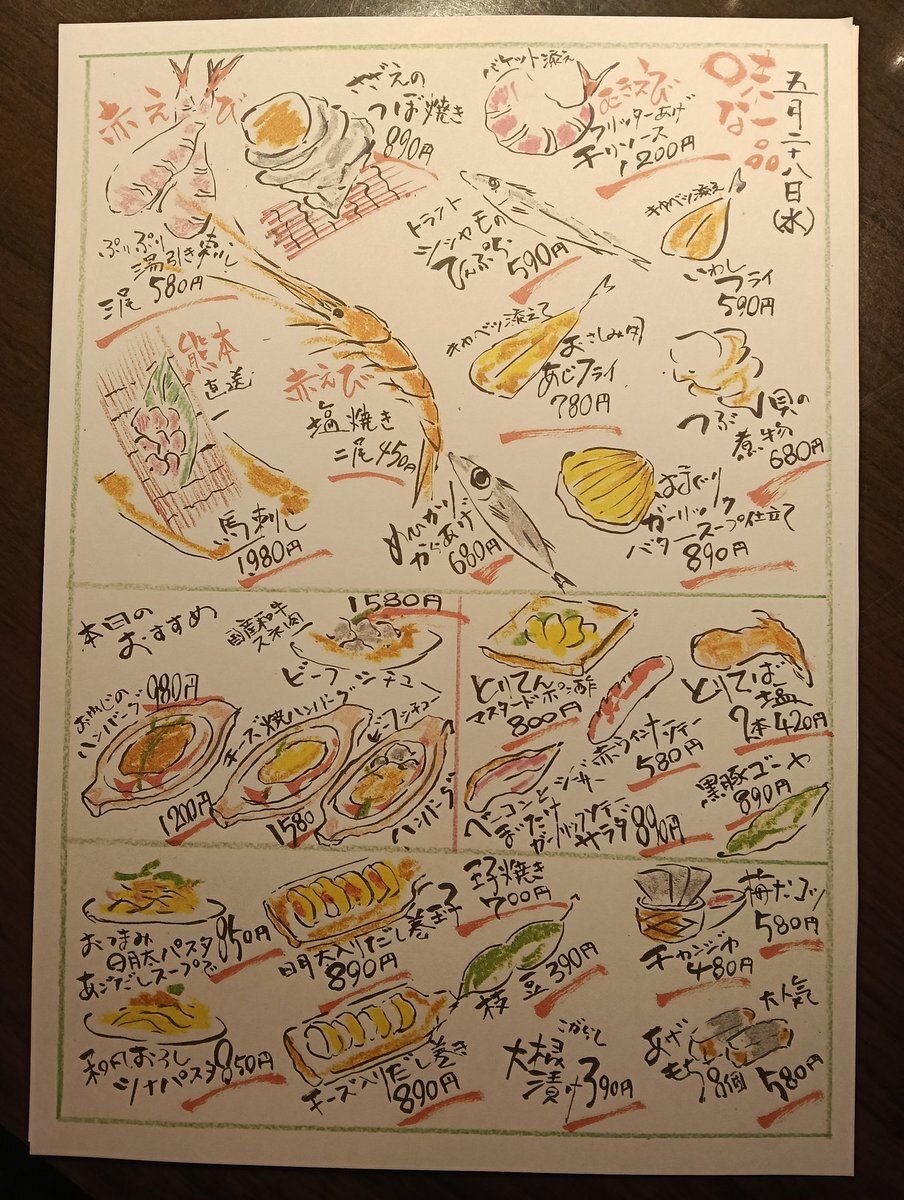 五月二十八日(水)
味な一品
バケット添え
むきえび
フリッターあげ
チリソース
1200円
さざえの
つぼ焼き
890円
赤えび
ぷりぷり
湯引き刺し
三尾 580円
キャベツ添え
いわし
フライ
590円
トラフト
シシャモの
てんぷら
590円
キャベツ添えて
おさしみ用
あじフライ
780円
つぶ貝の
煮物
680円
はまぐり
ガーリック
バタースープ仕立て
890円
赤えび
塩焼き
二尾 450円
めひかり
からあげ
680円
熊本
直送
馬刺し
1980円
本日の
おすすめ
国産和牛
スネ肉
1580円
ビーフシチュー
980円
おろしの
ハンバーグ
チーズ焼ハンバーグ
1200円
ビーフシチュー
ハンバーグ
1580
とりてん
マスタードポン酢
800円
とりてば
塩
2本 420円
赤ウインナーソテー
580円
ベーコンと
まいたけ
ガーリックソテー
シーザー
サラダ 890円
黒豚ゴーヤ
890円
おつまみ
明太パスタ
あごだしスープで
850円
明太入りだし巻玉子
890円
玉子焼き
700円
枝豆 390円
梅たコツ
580円
チャンジャ
480円
和風おろし
ツナパスタ 850円
チーズ入りだし巻き
890円
こがらし
大根
漬け 390円
大人気
あげ
もち 8個
580円